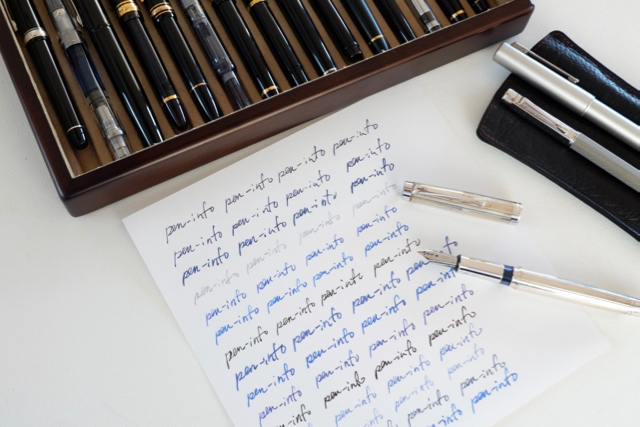 pen-info pen-info pen-info pen-info
pen-info pen-info pen-info pen-info
pen-info pen-info pen-info pen-info
pen-info pen-info pen-info pen-info
pen-info pen-info pen-info pen-info
pen-info pen-info pen-info pen-info
pen-info pen-info pen-info pen-info
pen-info pen-info pen-info pen-info
pen-info pen-info pen-info pen-info
pen-info pen-info pen-info pen-info
pen-info pen-info pen-info pen-info
pen-info pen-info pen-info
pen-info pen-info
pen-info